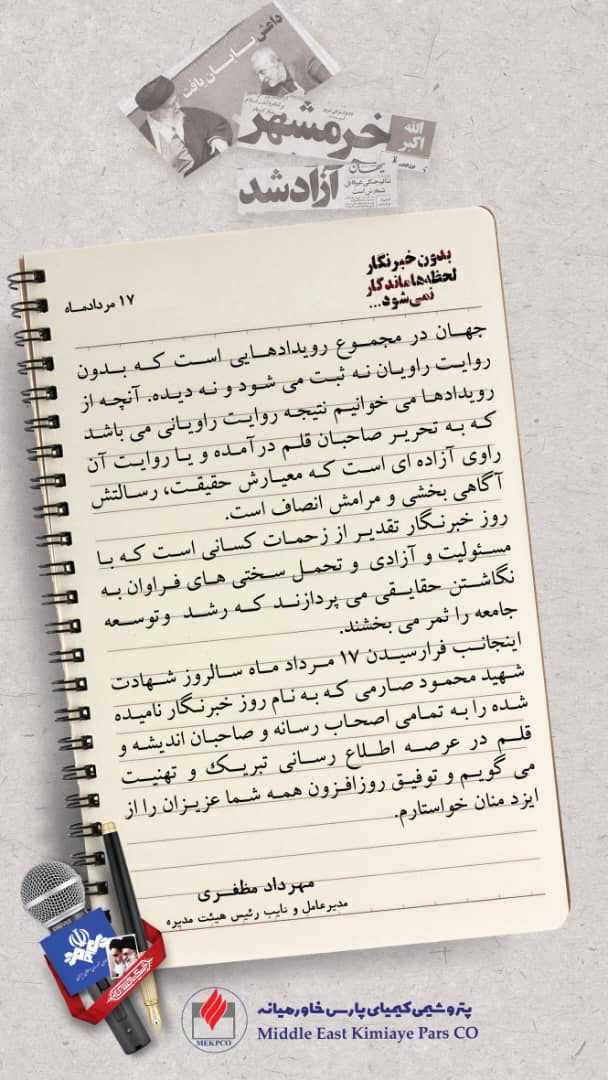 داعش پایان یافت
خرمشهر
الله
اکبر
آزاد شد
بدون خبرنگار
لحظه‌ها ماندگار
نمی‌شود...
۱۷ مردادماه
جهان در مجموع رویدادهایی است که بدون
روایت راویان نه ثبت می شود و نه دیده. آنچه از
رویدادها می خوانیم نتیجه روایت راویانی می باشد
که به تحریر صاحبان قلم درآمده و یا روایت آن
راوی آزاده ای است که معیارش حقیقت، رسالتش
آگاهی بخشی و مرامش انصاف است.
روز خبرنگار تقدیر از زحمات کسانی است که با
مسئولیت و آزادی و تحمل سختی های فراوان به
نگاشتن حقایقی می پردازند که رشد وتوسعه
جامعه را ثمر می بخشند.
اینجانب فرارسیدن ۱۷ مرداد ماه سالروز شهادت
شهید محمود صارمی که به نام روز خبرنگار نامیده
شده را به تمامی اصحاب رسانه و صاحبان اندیشه و
قلم در عرصه اطلاع رسانی تبریک و تهنیت
می گویم و توفیق روزافزون همه شما عزیزان را از
ایزد منان خواستارم.
مهرداد مظفری
مدیرعامل و نایب رئیس هیئت مدیره
MEKPCO
پتروشیمی کیمیای پارس خاورمیانه
Middle East Kimiaye Pars CO